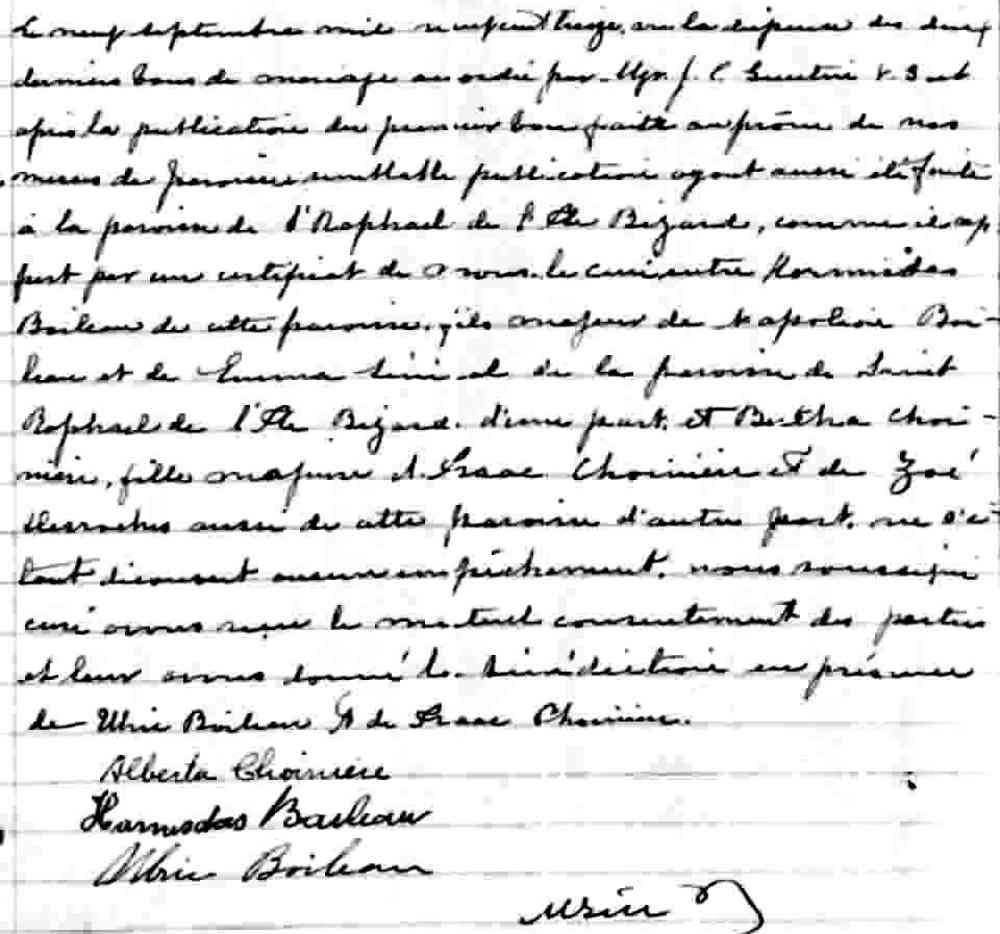 Le neuf septembre mil neuf cent treize, vu la dispense des deux
derniers bans de mariage accordée par Mgr. J. C. et
après la publication du premier ban faite au prône de nos
messes de paroisse semblable publication ayant aussi été faite
à la paroisse de Raphael de l'Ile Bizard, comme il ap
pert par un certificat de le curé entre Hormisdas
Boileau de cette paroisse, fils majeur de Napoléon Boi-
leau et de Emma de la paroisse de Saint
Raphael de l'Ile Bizard, d'une part, et Bertha Choi-
nière, fille majeure d'Isaac Choinière et de Zoé
Desroches aussi de cette paroisse d'autre part, ne s'é-
tant découvert aucun empêchement, nous soussigné
curé avons reçu le mutuel consentement des parties
et leur avons donné la bénédiction en présence
de Ulric Boileau et de Isaac Choinière.
Alberta Choiniere
Hormisdas Boileau
Ulric Boileau